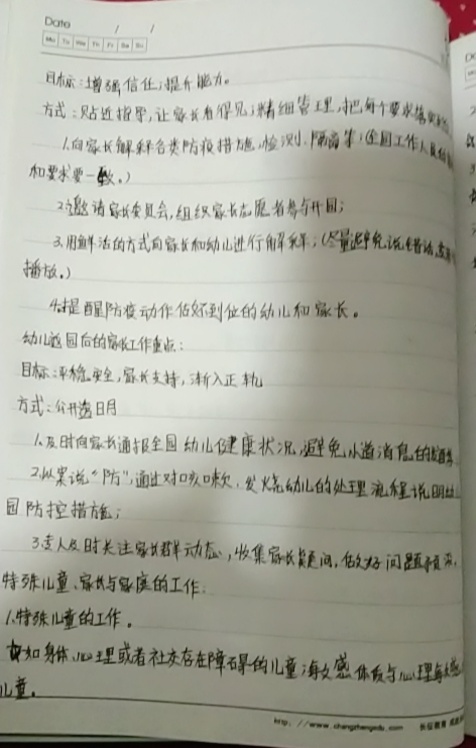 Date / /
Mo Tu We Th Fr Sa Su
目标:增强信任;提升能力。
方式:贴近指导,让家长看得见;精细管理,把每个要求落实
1.向家长解释各类防疫措施,检测、隔离等;(全园工作人员
和要求要一致。)
2.邀请家长委员会,组织家长志愿者参与开园;
3.用鲜活的方式向家长和幼儿进行解释;(尽量避免说
播放。)
4.提醒防疫动作做不到位的幼儿和家长。
幼儿返园后的家长工作重点:
目标:平稳安全,家长支持,渐入正轨
方式:公开透明
1.及时向家长通报全园幼儿健康状况,避免小道消息的
2.以案说“防”,通过对咳嗽、发烧幼儿的处理流程说明
园防控措施;
3.专人及时关注家长群动态,收集家长疑问,做好问题
特殊儿童、家长与家庭的工作:
1.特殊儿童的工作。
如身体、心理或者社交存在障碍的儿童;海敏感体质与心理
儿童。
http://www.changzhengedu.com 长征教育